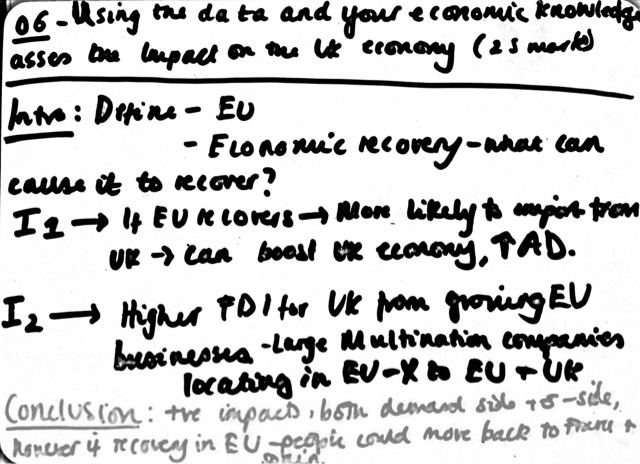 06 - Using the data and your economic knowledge
asses the impact on the UK economy (25 marks)
Intro: Define - EU
- Economic recovery - what can
cause it to recover?
I1 → If EU recovers → More likely to import from
UK → can boost UK economy, ↑AD.
I2 → Higher FDI for UK from growing EU
businesses - Large Multination companies
locating in EU - X to EU + UK
Conclusion: +ve impacts, both demand side + S-side,
however if recovery in EU - people could move back to France +